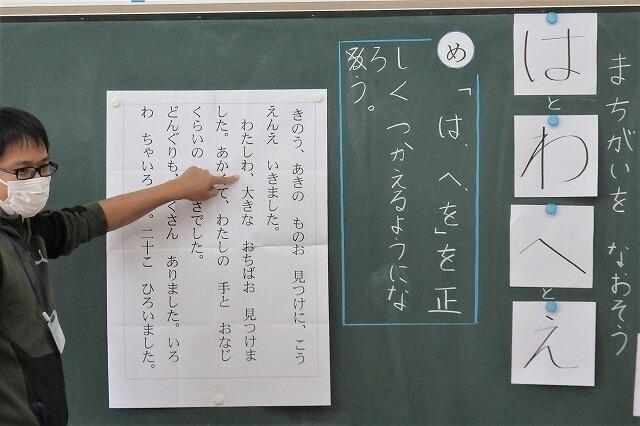 まちがいを なおそう
は
と
わ
へ
と
え
め
「は、へ、を」を 正
しく つかえるようにな
ろう。
きのう、あきの ものお 見つけに、こう
えんえ いきました。
わたしわ、大きな おちばお 見つけま
した。あか て、わたしの 手と おなじ
くらいの さでした。
どんぐりも、 くさん ありました。いろ
わ ちゃいろ 。二十こ ひろいました。